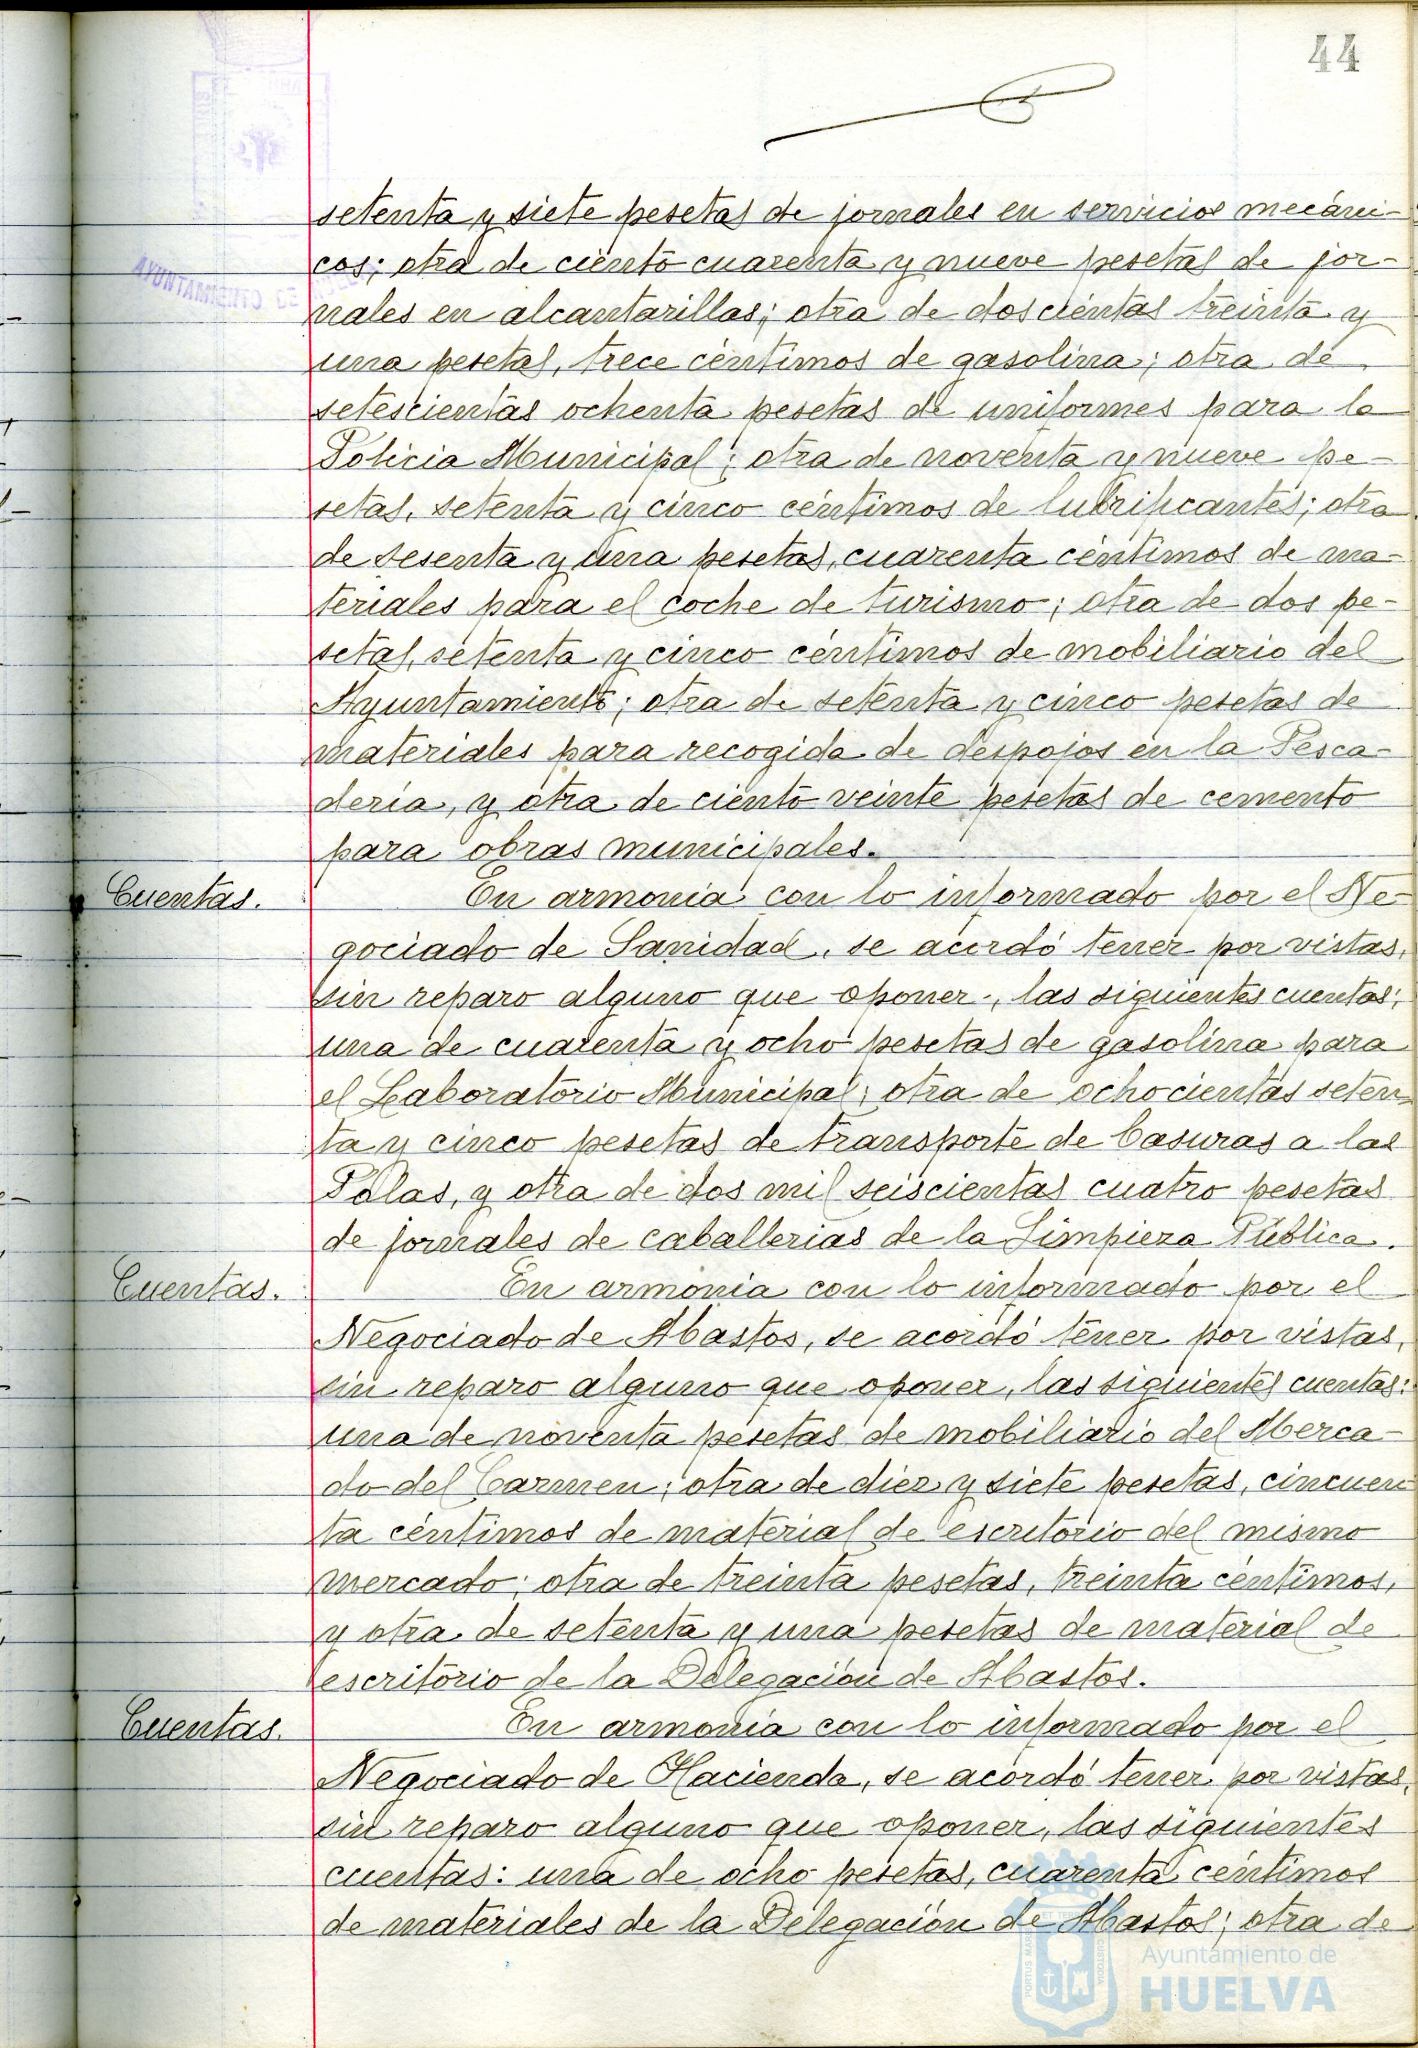 44
setenta y siete pesetas de jornales en servicios mecáni-
cos; otra de ciento cuarenta y nueve pesetas de jor-
nales en alcantarillas; otra de doscientas treinta y
una pesetas, trece céntimos de gasolina; otra de
setescientas ochenta pesetas de uniformes para la
Policia Municipal; otra de noventa y nueve pe-
setas, setenta y cinco céntimos de lubrificantes; otra
de sesenta y una pesetas, cuarenta céntimos de ma-
teriales para el coche de turismo; otra de dos pe-
setas, setenta y cinco céntimos de mobiliario del
Ayuntamiento; otra de setenta y cinco pesetas de
materiales para recogida de despojos en la Pesca-
dería, y otra de ciento veinte pesetas de cemento
para obras municipales.
Cuentas. En armonia con lo informado por el Ne-
gociado de Sanidad, se acordó tener por vistas,
sin reparo alguno que oponer, las siguientes cuentas;
una de cuarenta y ocho pesetas de gasolina para
el Laboratorio Municipal; otra de ochocientas seten-
ta y cinco pesetas de transporte de basuras a las
Palas, y otra de dos mil seiscientas cuatro pesetas
de jornales de caballerias de la Limpieza Pública.
Cuentas. En armonia con lo informado por el
Negociado de Abastos, se acordó tener por vistas,
sin reparo alguno que oponer, las siguientes cuentas:
una de noventa pesetas de mobiliario del Merca-
do del Carmen; otra de diez y siete pesetas, cincuen
ta céntimos de material de escritorio del mismo
mercado; otra de treinta pesetas, treinta céntimos,
y otra de setenta y una pesetas de material de
escritorio de la Delegación de Abastos.
Cuentas. En armonia con lo informado por el
Negociado de Hacienda, se acordó tener por vistas,
sin reparo alguno que oponer, las siguientes
cuentas: una de ocho pesetas, cuarenta céntimos
de materiales de la Delegación de Abastos; otra de
AYUNTAMIENTO DE
Ayuntamiento de
HUELVA